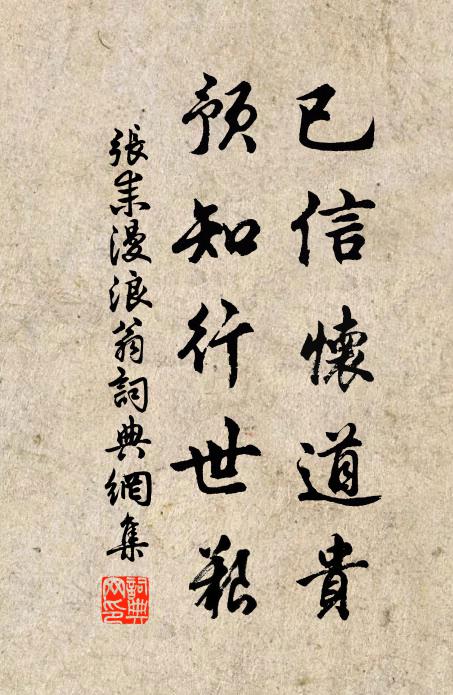 已信懷道貴
預知行世艱
張耒漫浪翁詞典網集
詞典網印